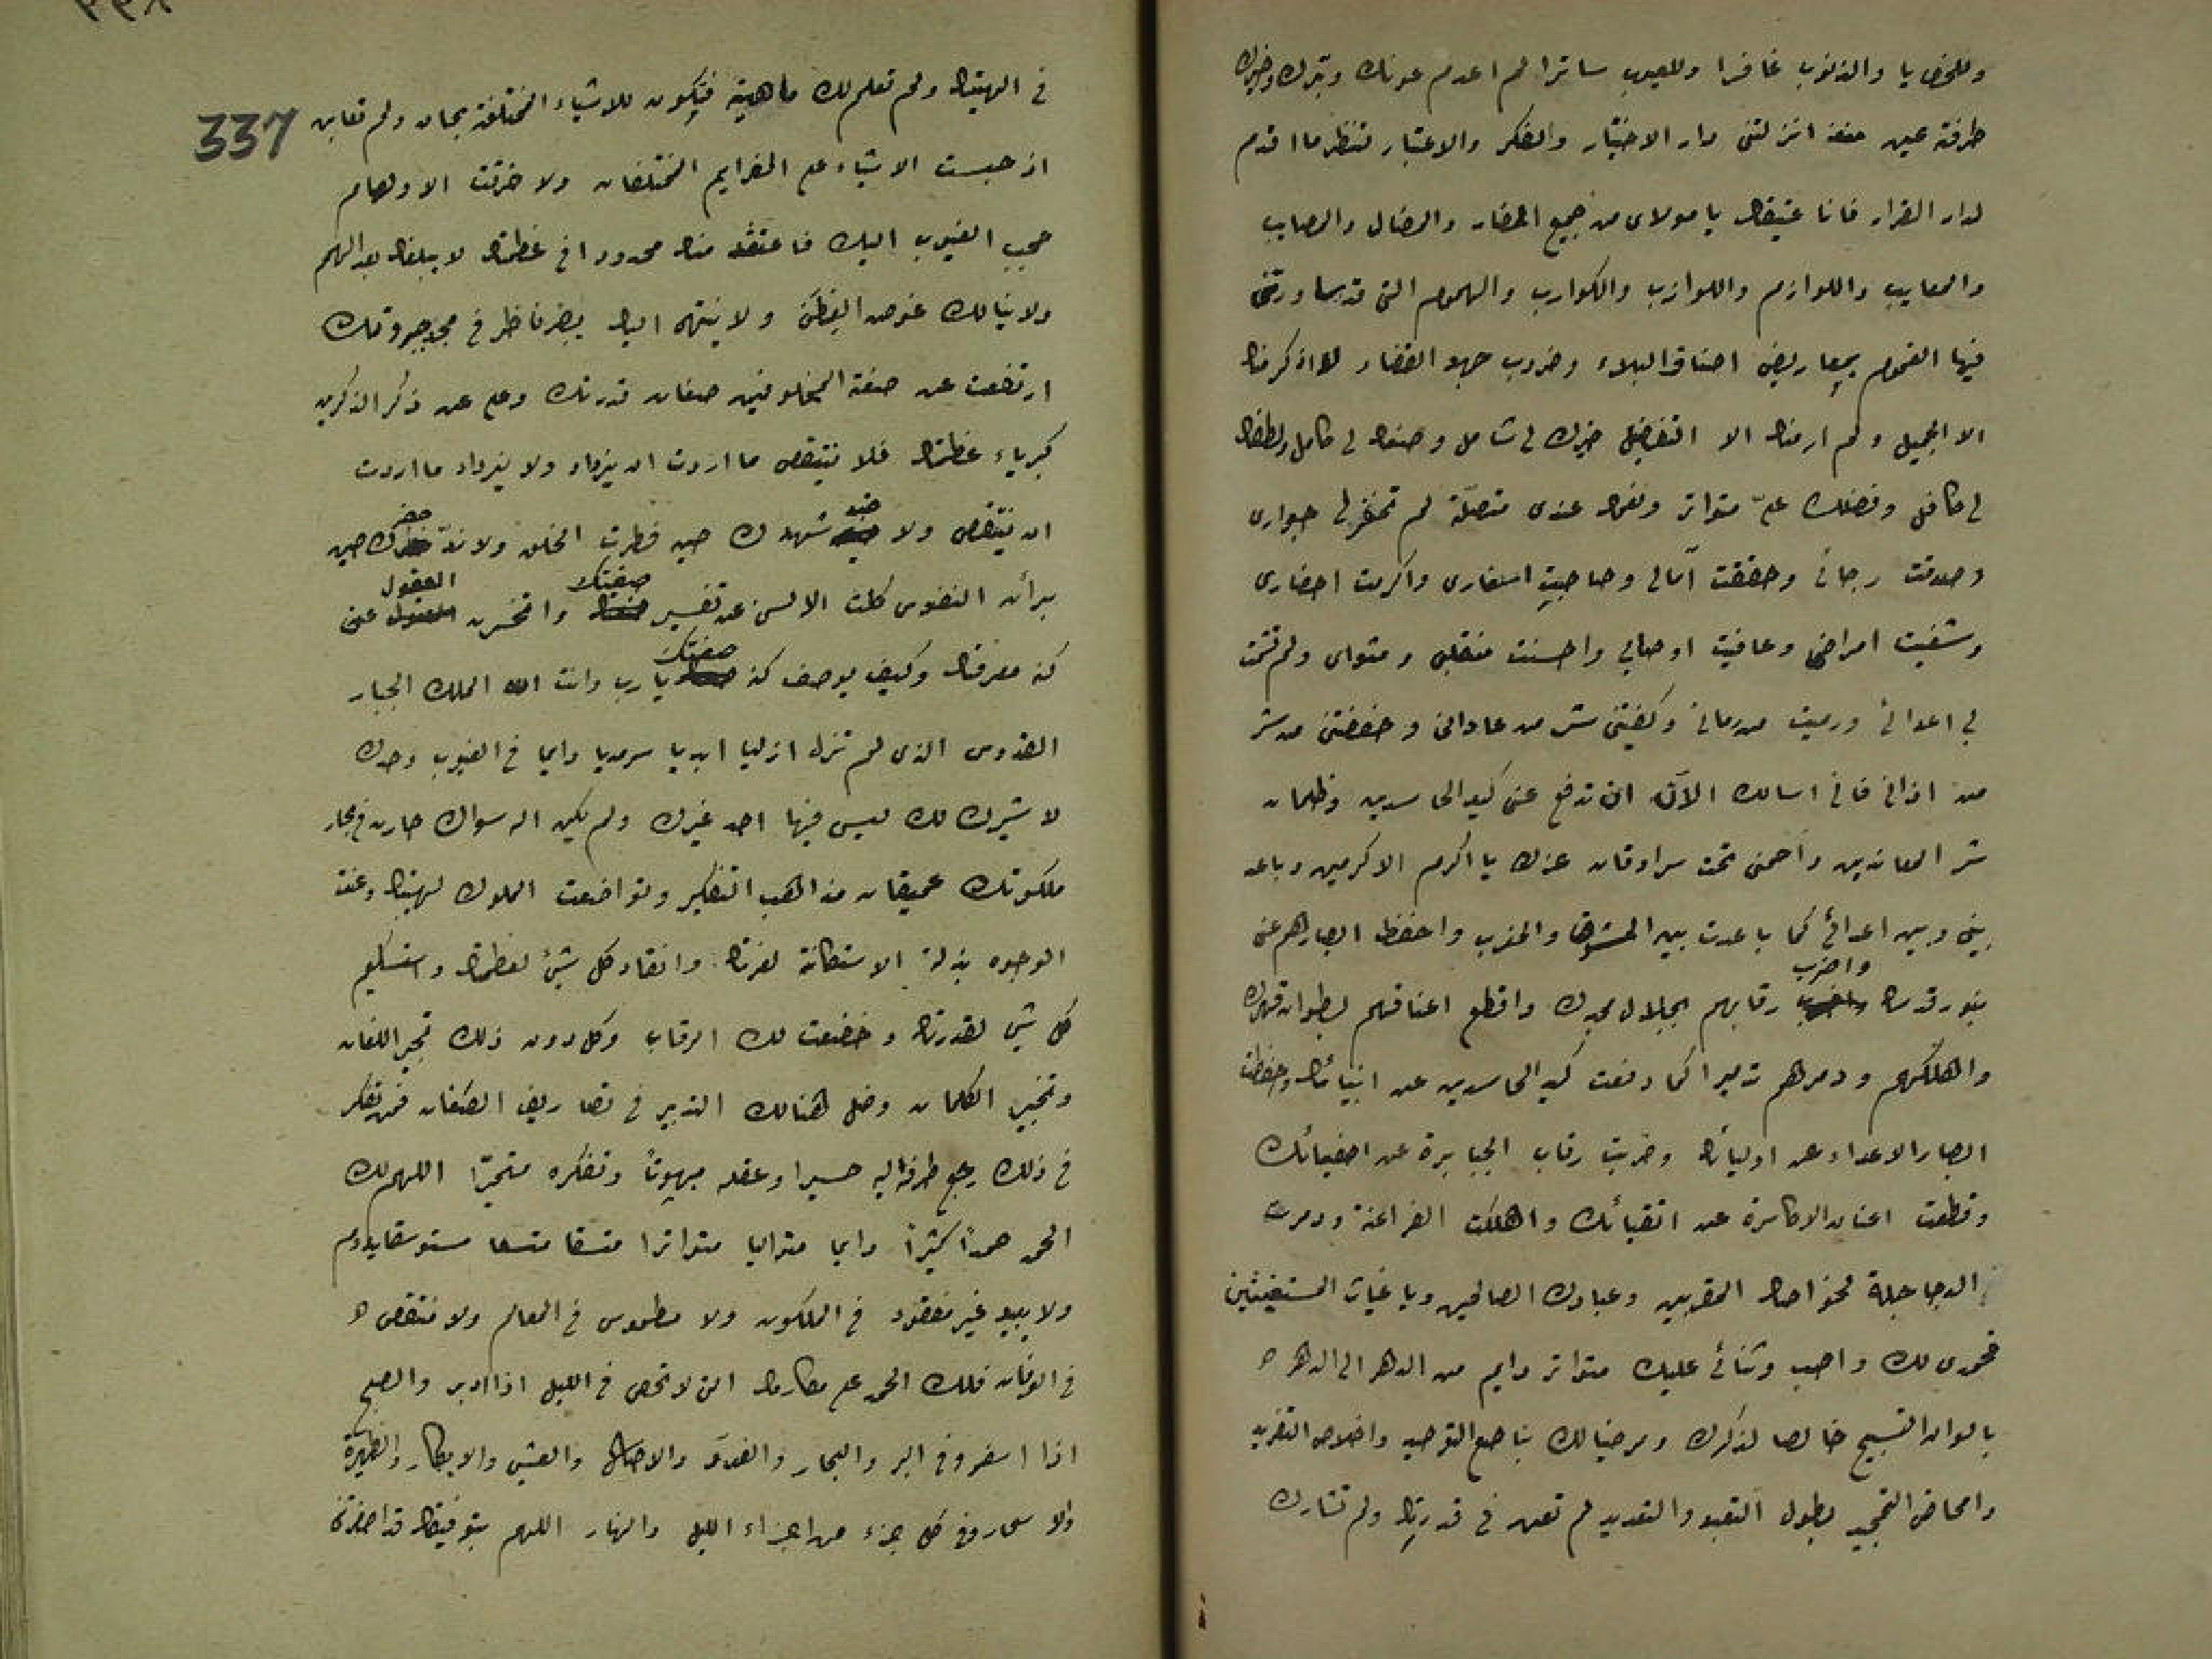 وللخطايا والذنوب غافرا وللعيوب ساترا لم اعدم عونك وبرك وخيرك
طرفة عين منذ انزلتنى دار الاختبار والفكر والاعتبار لتنظر ما اقدم
لدار القرار فانا عتيقك يا مولاى من جميع المضار والمضال والمصايب
والمعايب واللوازم واللوازب والكوارب والهموم التى قد ساورتنى
فيها الغموم بمعاريض اصناف البلاء وضروب جهد القضاء لا اذكر منك
الا الجميل ولم ار منك الا التفضيل خيرك لى شامل وصنعك لى كامل ولطفك
لى كافل وفضلك علىّ متواتر ونعمك عندى متصلة لم تخفر لى جوارى
وصدقت رجائى وحققت آمالى وصاحبت اسفارى واكرمت احضارى
وشفيت امراضى وعافيت اوصابى واحسنت منقلبى ومثواى ولم تشمت
بى اعدائى ورميت من رمانى وكفيتنى شر من عادانى وحفظتنى من شر
من اذانى فانى اسالك الآن ان تدفع عنى كيد الحاسدين وظلمات
شر المعاندين واحمنى تحت سرادقات عزك يا اكرم الاكرمين وباعد
بينى وبين اعدائى كما باعدت بين المشرق والمغرب واخطف ابصارهم عنى
بنور قدسك واضرب رقابهم بجلال مجدك واقطع اعناقهم بسطوات قهرك
واهلكهم ودمرهم تدميرا كما دفعت كيد الحاسدين عن انبيائك وخطفت
ابصار الاعداء عن اوليائك وضربت رقاب الجبابرة عن اصفيائك
وقطعت اعناق الاكاسرة عن اتقيائك واهلكت الفراعنة ودمرت
الدجاجلة لخواصك المقربين وعبادك الصالحين ويا غياث المستغيثين
فحمدى لك واصب وثنائى عليك متواتر دايم من الدهر الى الدهر
بالوان التسبيح خالصا لذكرك ومرضيا لك بناصع التوحيد واخلاص التفريد
وامحاض التمجيد بطول التعبد والتعديد لم تعن فى قدرتك ولم تشارك
337
فى الهيتك ولم تعلم لك ماهية فتكون للاشياء المختلفة مجانسا ولم تعاين
اذ حبست الاشياء على الغرايم المختلفات ولا خرقت الاوهام
حجب الغيوب اليك فاعتقد منك محدودا فى عظمتك لا يبلغك بعد الهمم
ولا ينالك غوص الفطن ولا ينتهى اليك بصر ناظر فى مجد جبروتك
ارتفعت عن صفة المخلوقين صفات قدرتك وعلى عن ذكر الذاكرين
كبرياء عظمتك فلا ينتقص ما اردت ان يزداد ولا يزداد ما اردت
ان ينتقص ولا ضد شهدك حين فطرت الخلق ولا ند حضرك حين
برأت النفوس كلت الالسن عن تفسير صفتك وانحسرت العقول عن
كنه معرفتك وكيف يوصف كنه صفتك يا رب وانت الله الملك الجبار
القدوس الذى لم تزل ازليا ابديا سرمديا دايما فى الغيوب وحدك
لا شريك لك ليس فيها احد غيرك ولم يكن اله سواك حارت فى بحار
ملكوتك عميقات مذاهب التفكير وتواضعت الملوك لهيبتك وعنت
الوجوه بذلة الاستكانة لعزتك وانقاد كل شئ لعظمتك واستسلم
كل شئ لقدرتك وخضعت لك الرقاب وكل دون ذلك تحبير اللغات
وتحبير الكلمات وضل هنالك التدبير فى تصاريف الصفات فمن تفكر
فى ذلك رجع طرفه اليه حسيرا وعقله مبهوتا وتفكره متحيرا اللهم لك
الحمد حمدا كثيرا دايما متواليا متواترا متسقا متسعا مستوسقا يدوم
ولا يبيد غير مفقود فى الملكوت ولا مطموس فى المعالم ولا منتقص
فى العرفان فلك الحمد على مكارمك التى لا تحصى فى الليل اذا ادبر والصبح
اذا اسفر وفى البر والبحار والغدو والاصال والعشى والابكار والظهيرة
والاسحار وفى كل جزء من اجزاء الليل والنهار اللهم بتوفيقك قد احضرتنى